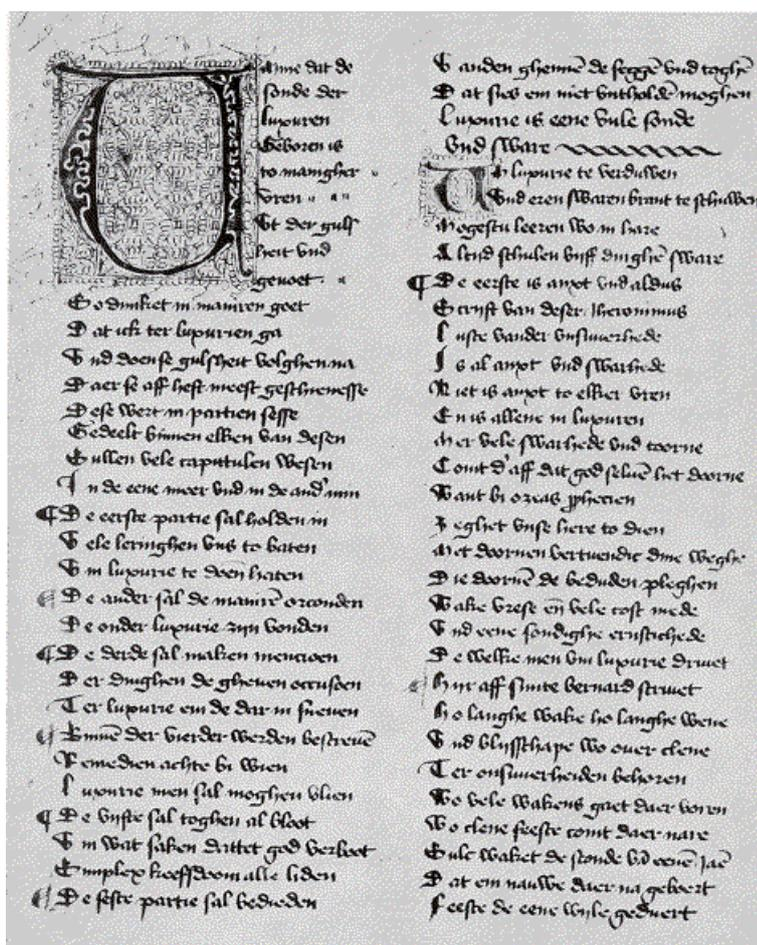 ame dat de
sonde der
luxuren
Geboren is
to mangher
vren
Vt der guls
heit vnd
genoet
So dunket in maniren goet
Dat ick ter luxurien ga
Vnd doen se gulsheit volghen na
Daer se aff heft meest geschienesse
Dese wert in partien sesse
Gedeelt binnen elken van desen
Sullen vele capittulen wesen
In de eene meer vnd in de and' min
De eerste partie sal holden in
Vele leringhen vns to baten
Vm luxurie te doen haten
De ander sal de manirē orconden
De onder luxurie zijn vonden
De derde sal maken mencioen
Der dinghen de gheven occusoen
Ter luxurie em de dar in sneven
Binnē der vierder werden bescreuē
Remedien achte bi wien
Luxurie men sal moghen vlien
De vijfte sal toghen al bloot
Vm wat saken dattet god verboot
Simplex keefsdoem alle liden
De seste partie sal bedieden
Vanden ghennē de seggē vnd toghē
Dat sies em niet vntholdē moghen
Luxurie is eene vule sonde
Vnd sware
Vm luxurie te verduwen
Vnd eren swaren brant te schuwen
Mogestu leeren wo in hare
Alend schulen vijff dinghē sware
De eerste is anxt vnd aldus
Scrijft van deser Jheronimus
Luste vander vnsuuerhede
Is al anxt vnd swarhede
Niet is anxt to elker vren
En is allene in luxuren
Mer vele swarhede vnd toorne
Comt d'aff dat god seluē hiet doorne
Want bi ozeas prophecien
Seghet vnse here to dien
Met doornen vertuendic dine weghe
Die doornē de beduden pleghen
Wake vrese eñ vele cost mede
Vnd eene sondighe ernstichede
De welke men vm luxurie driuet
Hir aff sinte bernard scriuet
Ho langhe wake ho langhe wene
Vnd blijsschape wo ouer clene
Ter onsuuerheiden behoren
Wo vele wakens gaet daer voren
Wo clene feeste comt daer nare
Sulc waket de stonde vā eenē jaē
Dat em nauwe daer na geboert
Feeste de eene wijle geduert